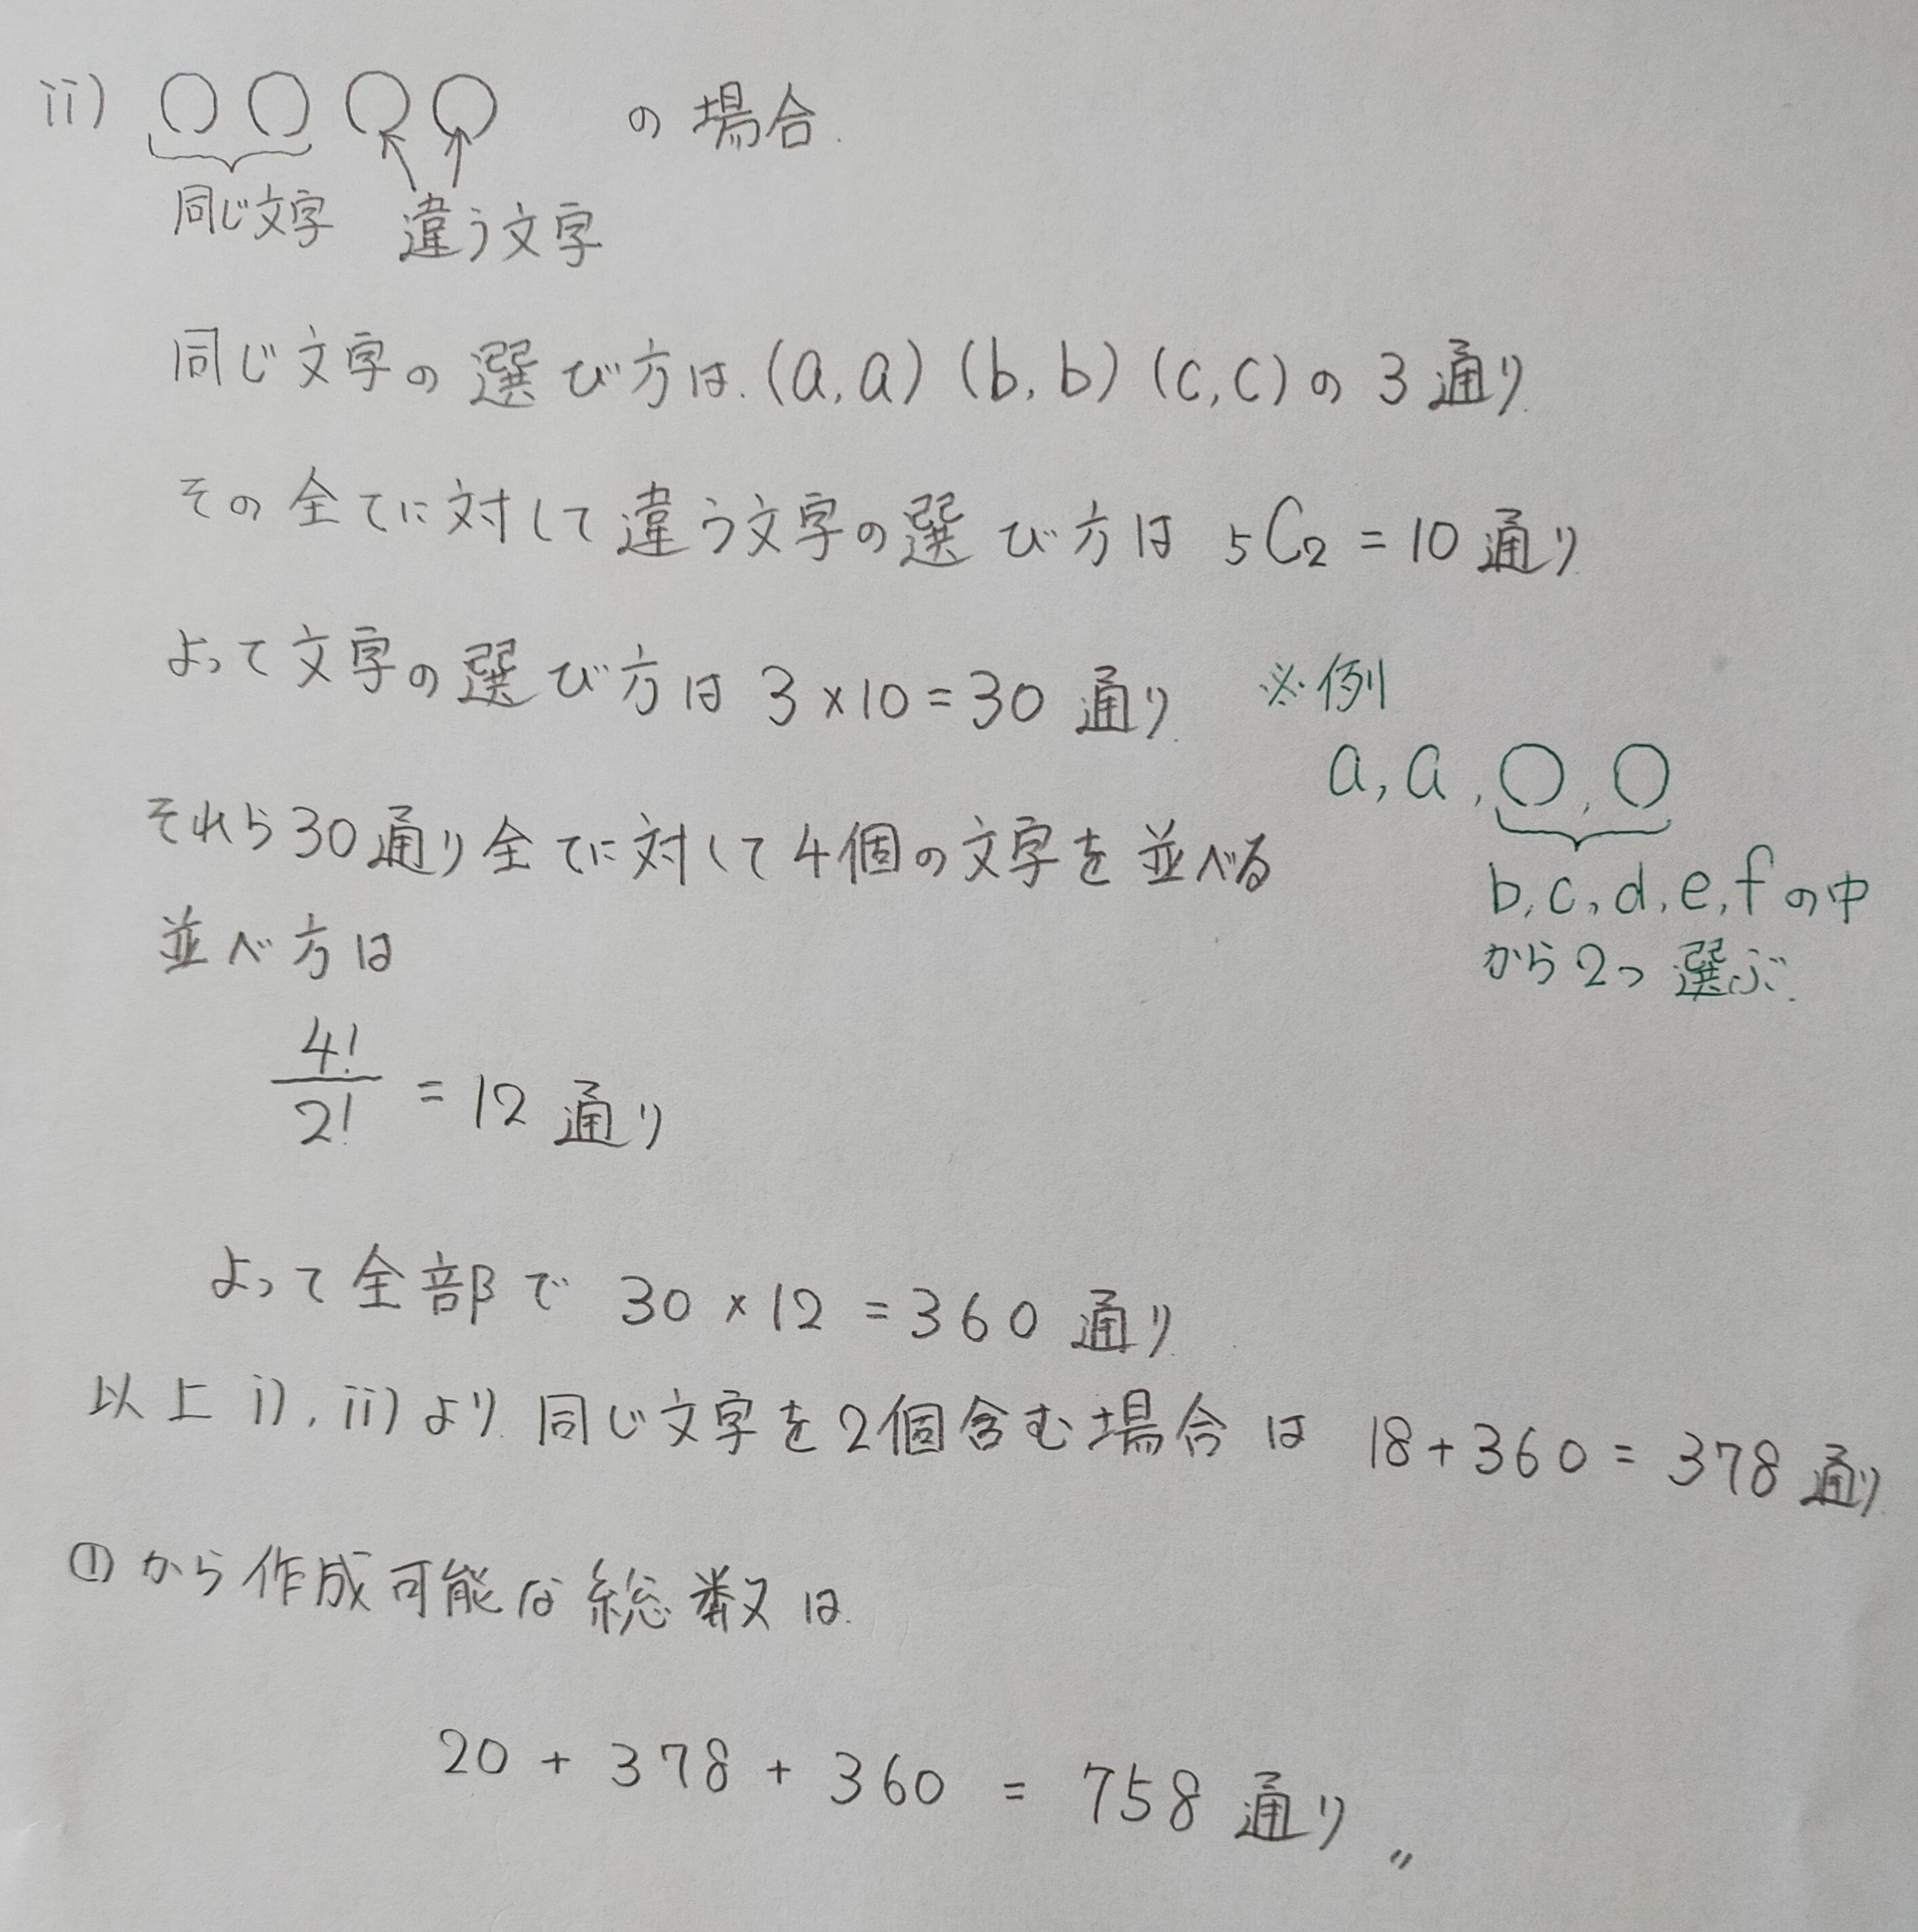 ii) ○ ○ ○ ○ の場合.
同じ文字 違う文字
同じ文字の選び方は.(a,a) (b,b) (c,c)の3通り.
その全てに対して違う文字の選び方は ₅C₂ = 10通り.
よって文字の選び方は 3×10=30 通り.
※例
a, a, ○, ○
b,c,d,e,fの中
から2つ選ぶ.
それら30通り全てに対して4個の文字を並べる
並べ方は
4!/2! = 12 通り
よって全部で 30×12 =360 通り.
以上 i), ii)より.同じ文字を2個含む場合は 18+360=378通り.
①から作成可能な総数は.
20 + 378 + 360 = 758 通り〃